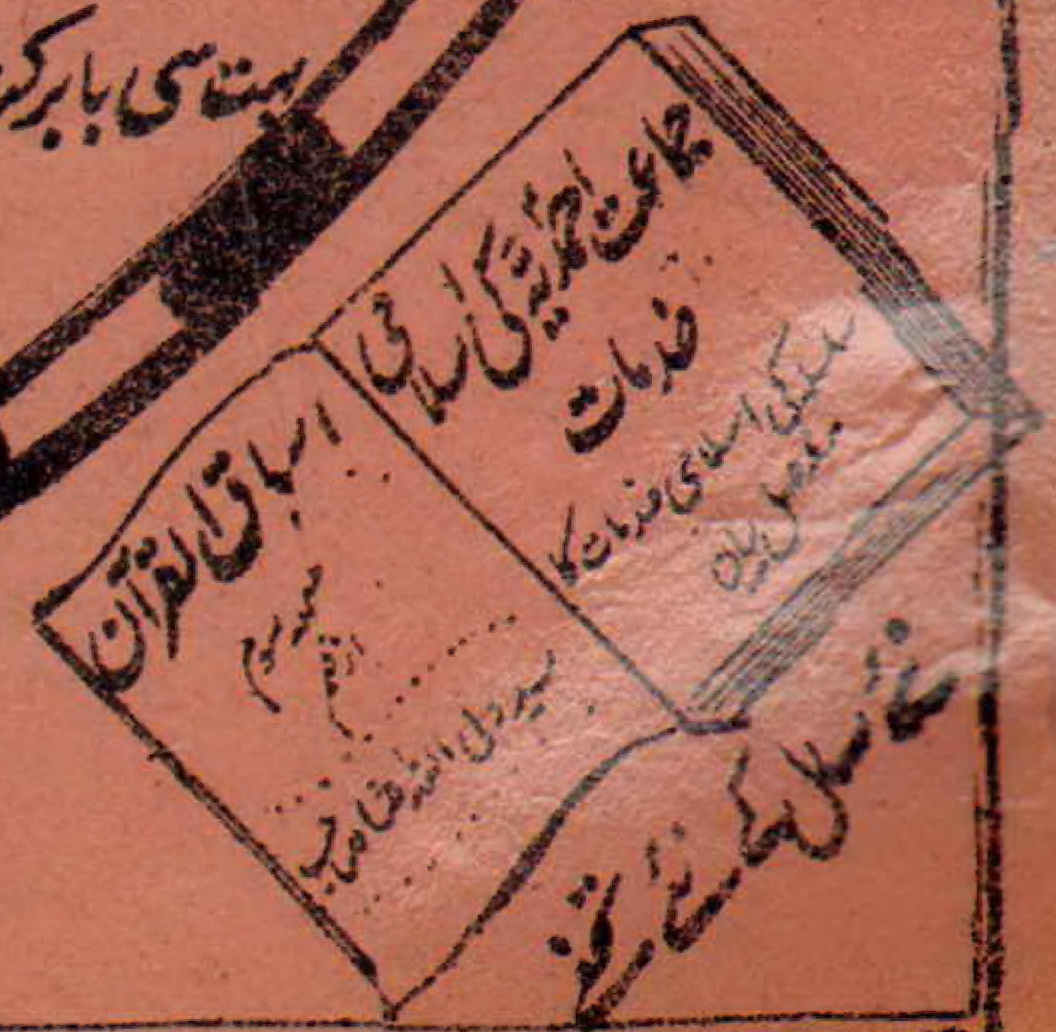 بہت سی بابرکت
جماعت احمدیہ کی اسلامی
خدمات
سلسلہ کی اسلامی خدمات کا
مفصل بیان
اسباق القرآن
حصہ سوم
از قلم
سید ولی اللہ شاہ صاحب
نئے سال کے نئے تحفے